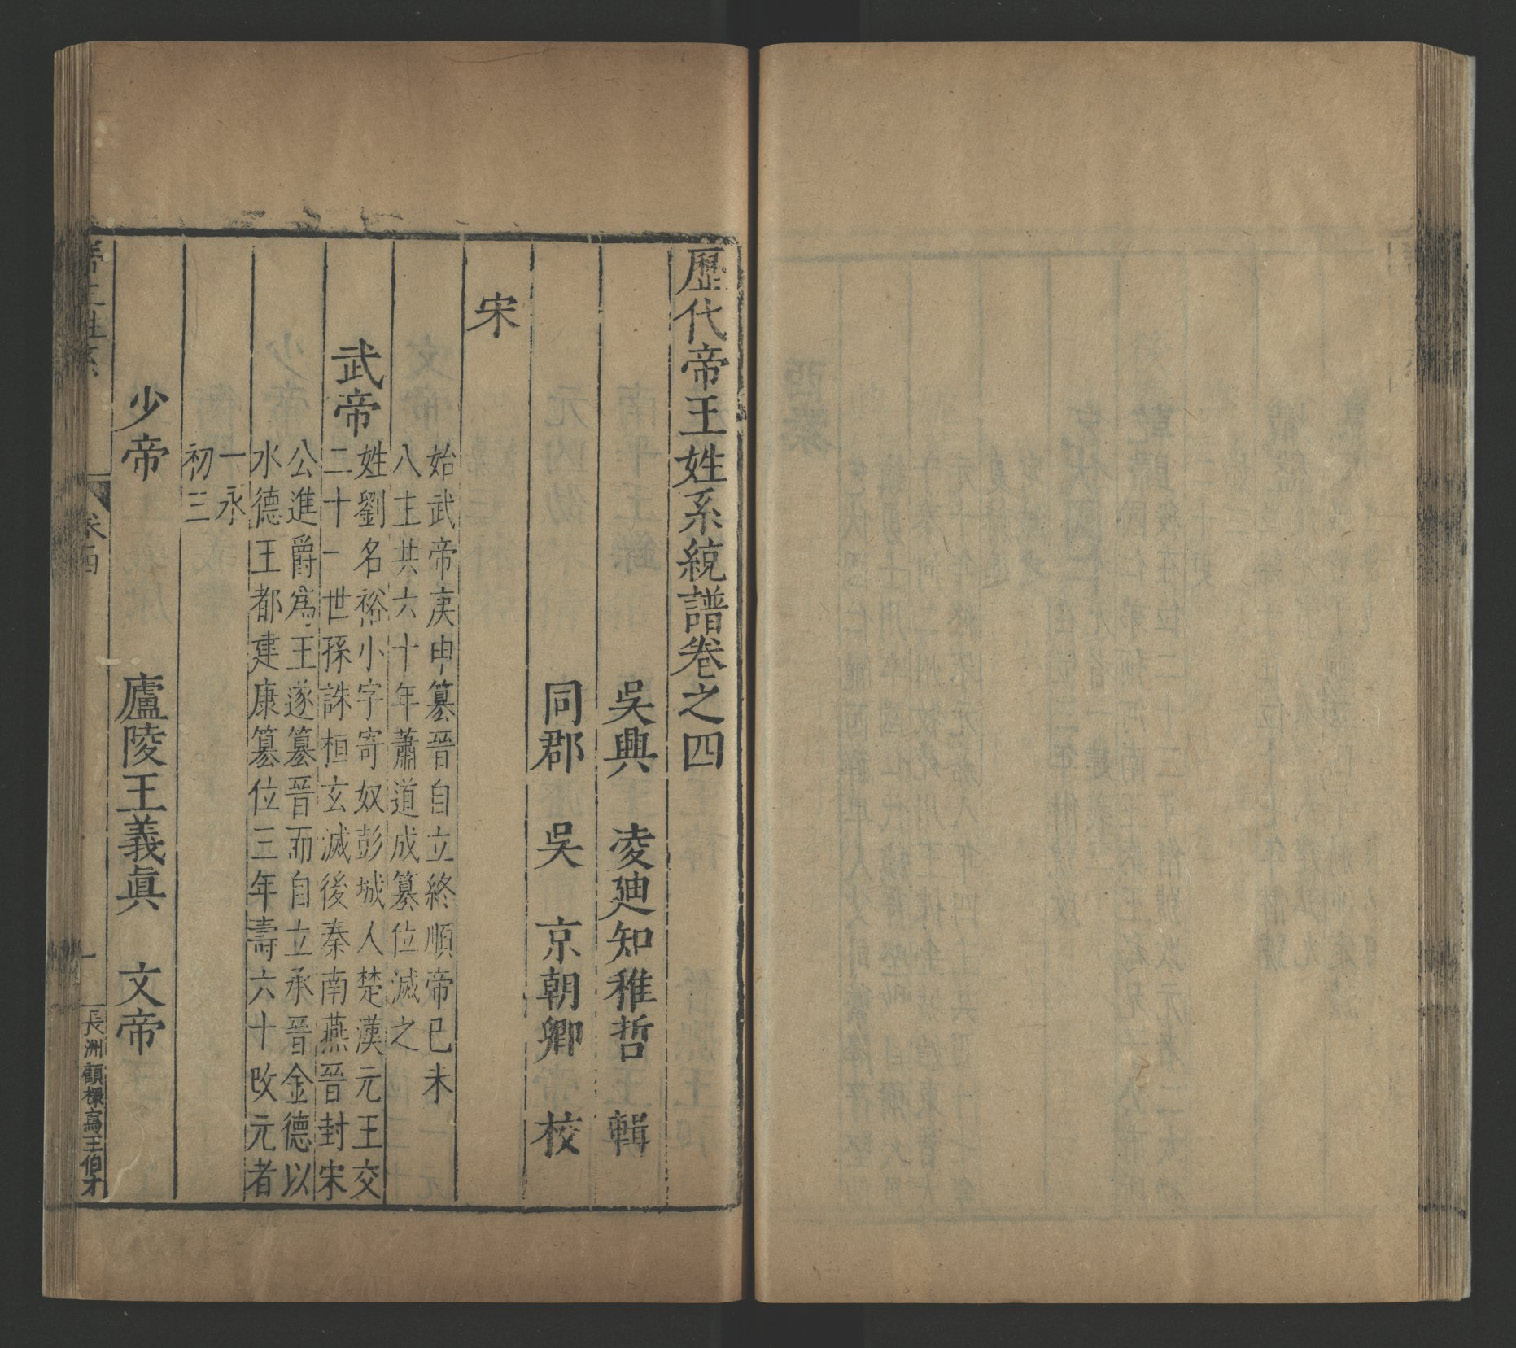 歷代帝王姓系統譜卷之四
吳興　凌迪知稚哲　輯
同郡　吳　京朝卿　校
宋
始武帝庚申簒晉自立終順帝巳未
八主共六十年蕭道成簒位滅之
武帝
姓劉名裕小字寄奴彭城人楚漢元王交
二十一世孫誅桓玄滅後秦南燕晉封宋
公進爵爲王遂簒晉而自立承晉金德以
水德王都建康簒位三年壽六十改元者
一永
初三
少帝　廬陵王義眞　文帝
帝王姓系　卷四　一　長洲顧櫰寫王伯才